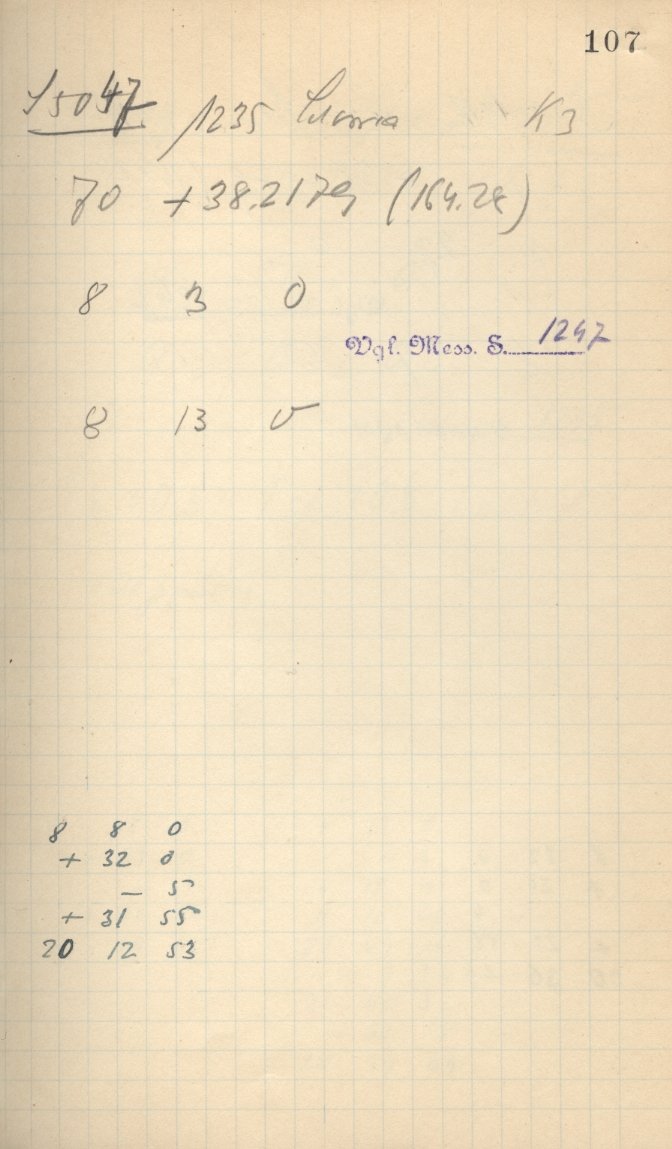 107
S5047 1235 K3
70 +38.2179 (164.28)
8 3 0
Vgl. Mess. S. 1247
8 13 0
8 8 0
+ 32 0
– 5
+ 31 55
20 12 53